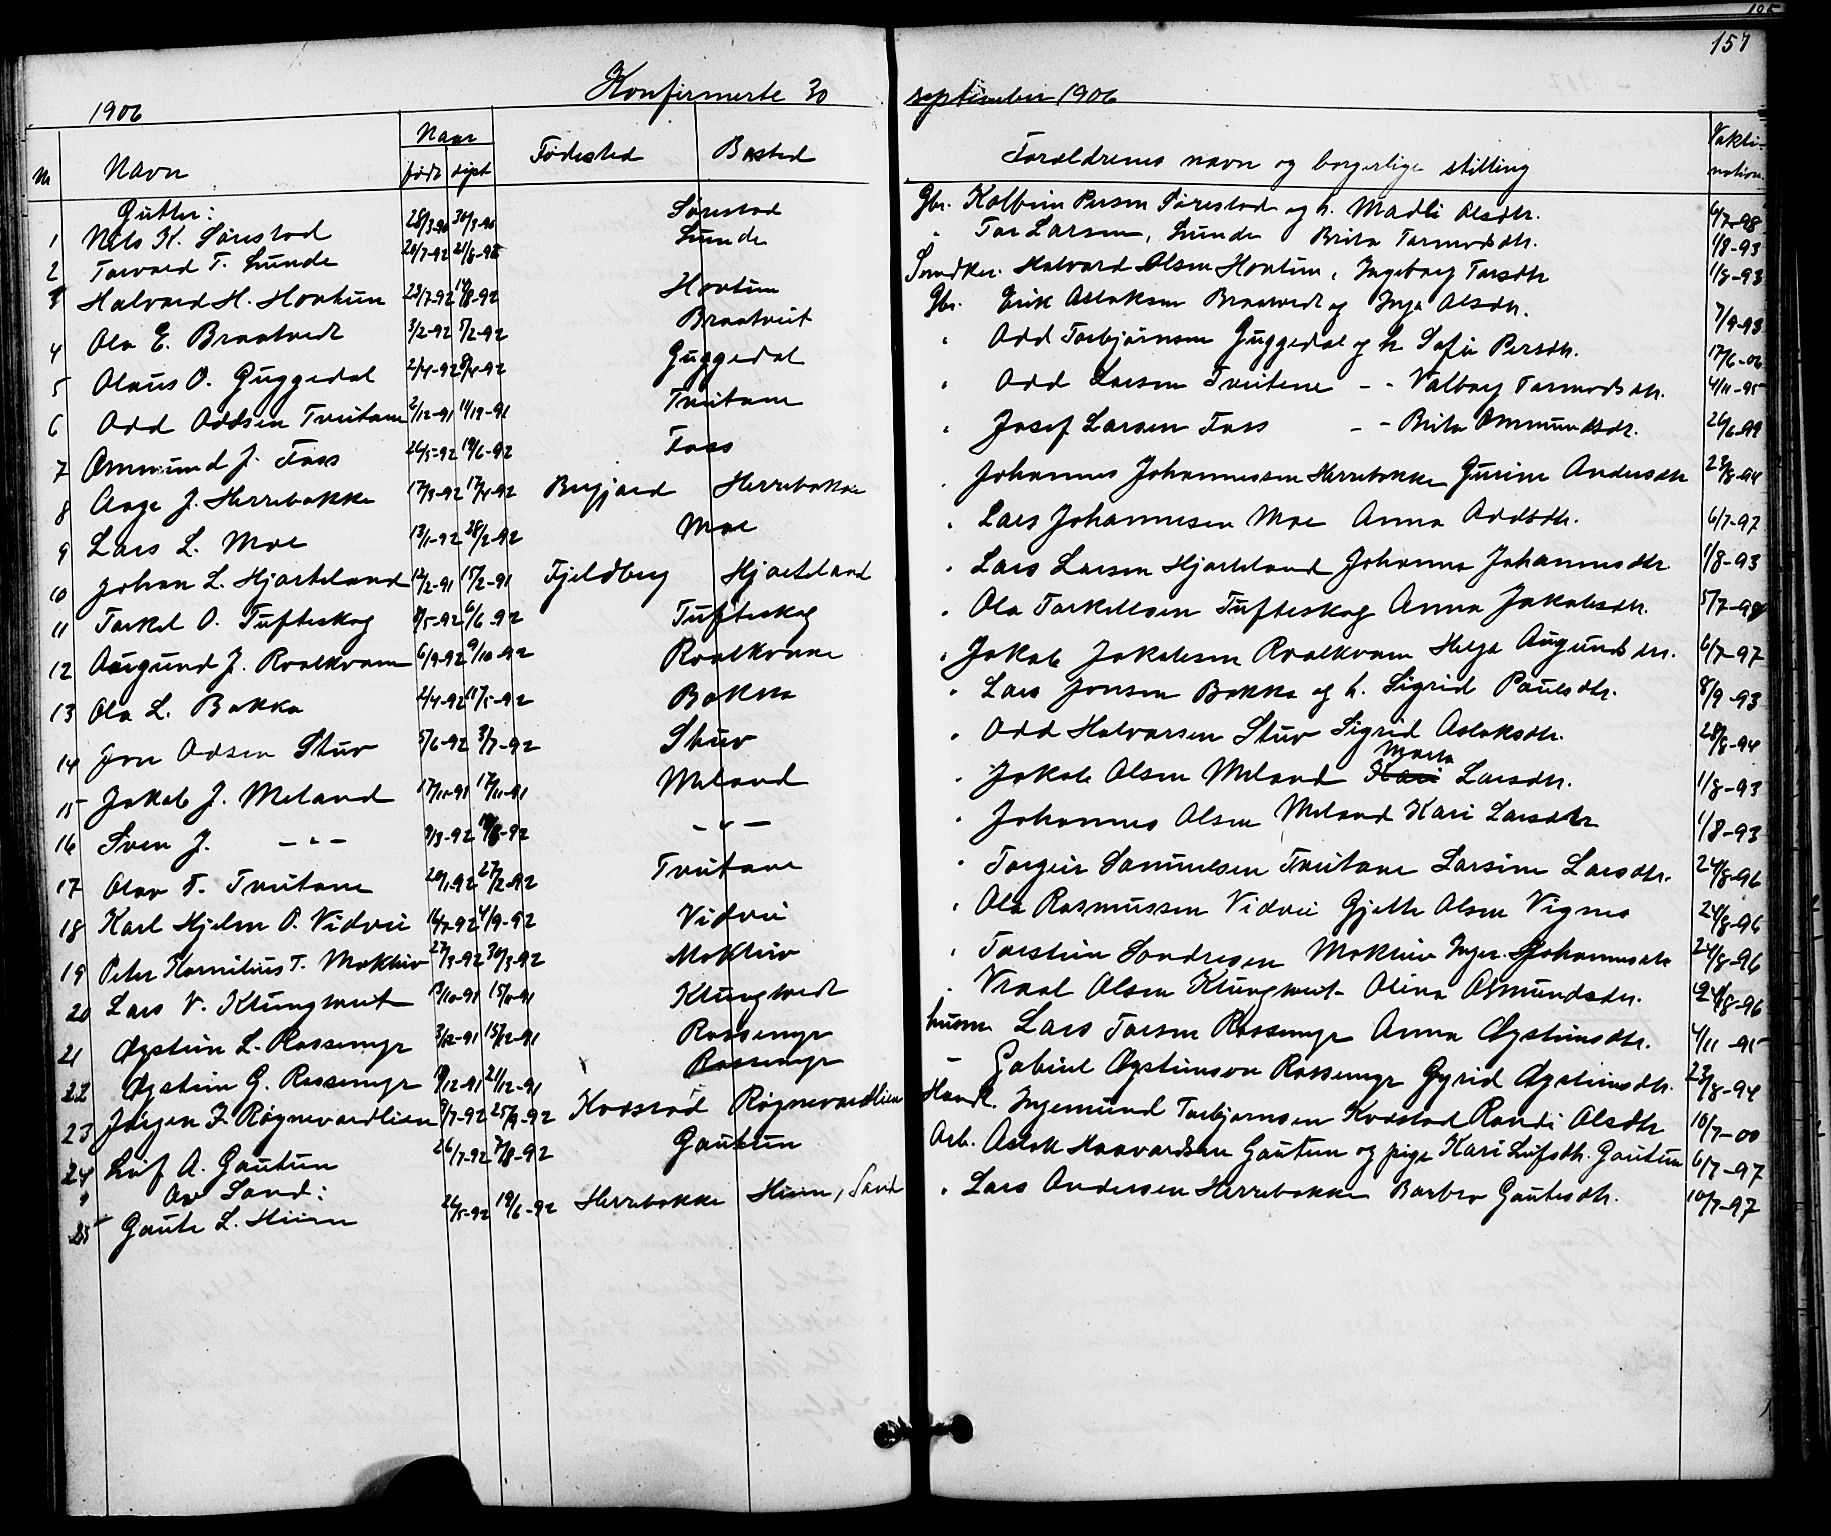 157
1906 Konfirmerte 30 september 1906
Nr Navn Naar født døpt Fødested Bosted Forældrenes navn og borgerlige stilling Vakti-nation
Gutter:
1 Nils K. Sørestad 28/3-90 30/3-90 Sørestad Gbr. Kolbein Persen Sørestad og h. Madli Olsdtr. 6/7-98
2 Torvard T. Lunde 20/7-92 Lunde " Tor Larsen, Lunde Brita Tormodsdtr. 1/8-93
3 Halvard H. Hovtun 23/7-92 14/8-92 Hovtun Halvard Olsen Hovtun, Ingeborg Torsdtr 1/8-93
4 Ola E. Braatvedt 3/2-92 7/2-92 Braatveit Gbr. Erik Aslaksen Braatvedt og Inga Olsdtr. 7/9-93
5 Olaus O. Guggedal 2/4-92 8/4-92 Guggedal " Odd Torbjørnsen Guggedal og h Sofie Persdtr. 17/6-06
6 Odd Oddsen Tveitane 2/12-91 14/12-91 Tveitane " Odd Larsen Tveitene - - Valborg Tormodsdtr. 4/11-95
7 Ommund J. Foss 26/5-92 19/6-92 Foss " Josef Larsen Foss - - Brita Ommundsdtr. 26/6-99
8 Aage J. Herrebakke 17/3-92 17/4-92 Herrebakke " Johannes Johannessen Herrebakke Gurine Andersdtr 23/8-94
9 Lars L. Moe 13/1-92 28/2-92 Moe " Lars Johannesen Moe Anna Oddsdtr. 6/7-97
10 Johan L. Hjorteland 12/2-91 15/2-91 Fjeldberg Hjorteland " Lars Larsen Hjorteland Johanna Johannesdtr 1/8-93
11 Torkel O. Tufteskog 8/5-92 6/6-92 Tufteskog " Ola Torkellsen Tufteskog Anna Jakobsdtr. 5/7-98
12 Augund J. Roalkvam 6/9-92 9/10-92 Roalkvam " Jakob Jakobsen Roalkvam Helga Augundsdtr. 6/7-97
13 Ola L. Bakka 2/4-92 11/5-92 Bakka " Lars Jonsen Bakka og h. Sigrid Paulsdtr. 8/9-93
14 Jon Odsen Stuv 5/6-92 3/7-92 Stuv " Odd Halvarsen Stuv Sigrid Aslaksdtr. 28/8-94
15 Jakob J. Meland 17/10-91 17/11-91 Meland " Jakob Olsen Meland Kari Marta Larsdtr. 1/8-93
16 Sven J. - " - 9/3-92 - " - " Johannes Olsen Meland Kari Larsdtr 1/8-93
17 Olav T. Tveitane 20/1-92 27/2-92 Tveitane " Torgeir Samuelsen Tveitane Larsine Larsdtr. 24/8-96
18 Karl Hjelm O. Vidvei 4/9-92 Vidvei " Ola Rasmussen Vidvei Gjette Olsen Vignes 24/8-96
19 Peter Kornelius T. Mokleiv 27/3-92 30/3-92 Mokleiv " Torstein Sondresen Mokleiv Inger Johannesdtr 24/8-96
20 Lars V. Klungtveit 3/10-91 Klungtvedt " Vraal Olsen Klungtveit Olina Osmundsdtr. 24/8-96
21 Øystein L. Rossemyr 3/12-91 15/12-91 Rossemyr husm. Lars Torsen Rossemyr Anna Øysteinsdtr. 4/11-95
22 Øystein G. Rossemyr 19/12-91 21/12-91 Rossemyr - Gabriel Øysteinson Rossemyr Gyrid Øysteinsdtr. 23/8-94
23 Jørgen I. Røgnevardlien 9/7-92 25/9-92 Kvdstad Røgnevardlien Handl. Ingemund Torbjørnsen Kvdstad Randi Olsdtr 10/7-00
24 Leif A. Gautun 26/7-92 7/8-92 Gautun Arb. Aslak Haavardsen Gautun og pige Kari Leifsdtr. Gautun 6/7-97
Av Sand:
25 Gaute L. Hiim 26/5-92 19/6-92 Herrebakke Hiim, Sand " Lars Andersen Herrebakke Barbro Gautesdtr. 10/7-97